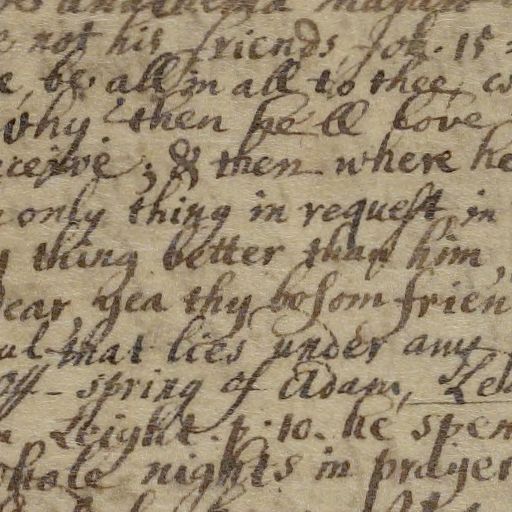 not his friends, Joh. 15
, be all in all to thee,
why then he'll love
; & then where he
only thing in request in
thing better than him,
dear, yea thy bosom frien
that lies under any
off-spring of Adam,
Leight. p. 10. he spen
whole nights in prayer